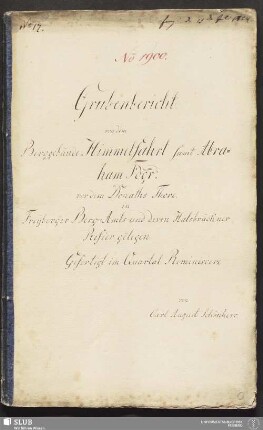 No 17.
No 1900.
Grubenbericht
von dem
Berggebäude Himmelfahrt samt Abra-
ham Fdgr.
vor dem Donaths Thore
in
Freyberger Berg-Amts und deren Halsbrückner
Refier gelegen
Gefertigt im Quartal Reminiscere
von
Carl August Schönherr
SLUB